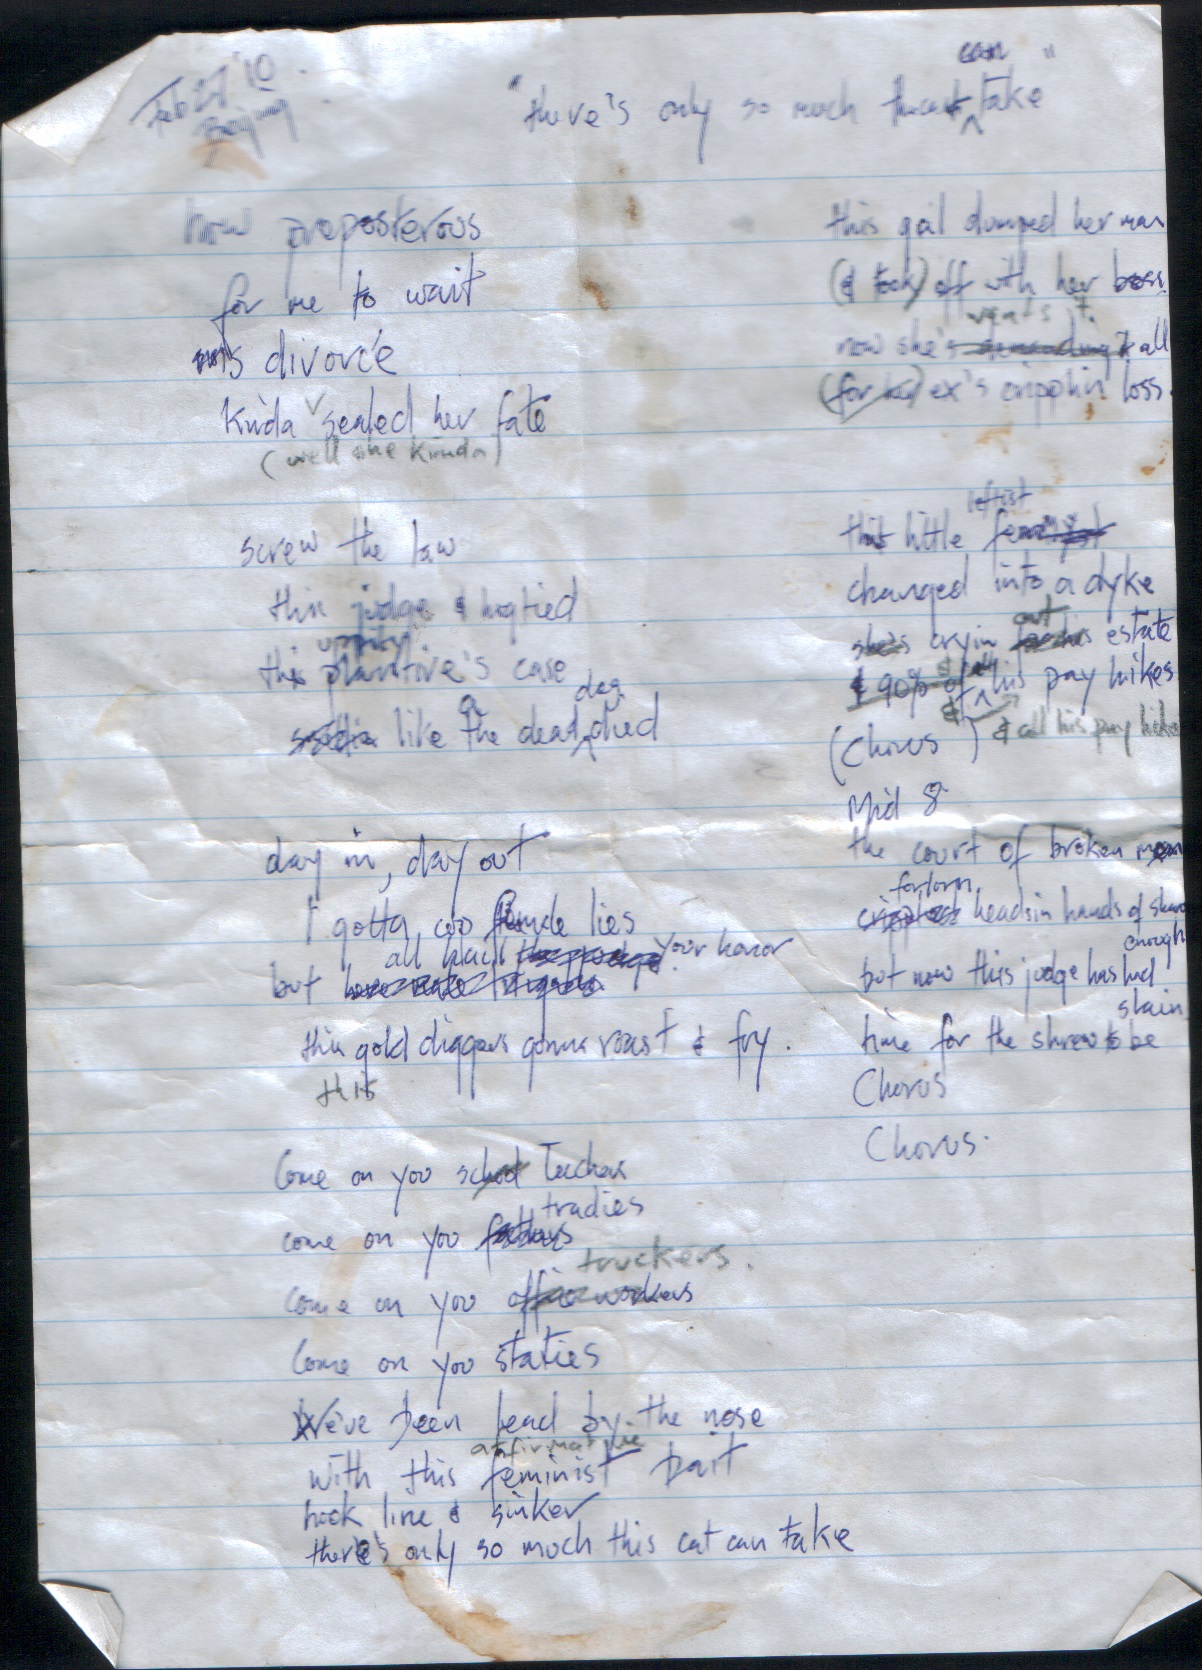 Feb 27 '10
Beijing
can
"there's only so much this cat take"
how preposterous
for me to wait
ms divorcée
kinda sealed her fate
(well she kinda)
screw the law
this judge & hogtied
uppity
this plantive's case
a dog
like the dead died
day in, day out
I gotta cop female lies
all hail your honor
but
this gold diggers gonna roast & fry.
this
Come on you school Teachers
tradies
come on you fathers
truckers.
Come on you office workers
Come on you staties
We've been lead by the nose
affirmative
with this feminist bait
hook line & sinker
there's only so much this cat can take
this gal dumped her man
(& took) off with her boss
wants it
now she's demanding it all
(for her) ex's cripplin loss.
leftist
this little feminist
changed into a dyke
out
she's cryin for his estate
& all
& 90% of his pay hikes
& all his pay hikes
(Chorus)
Mid 8
the court of broken men
forlorn
crippled heads in hands of shame
enough
but now this judge has had
slain
time for the shrew to be
Chorus
Chorus.